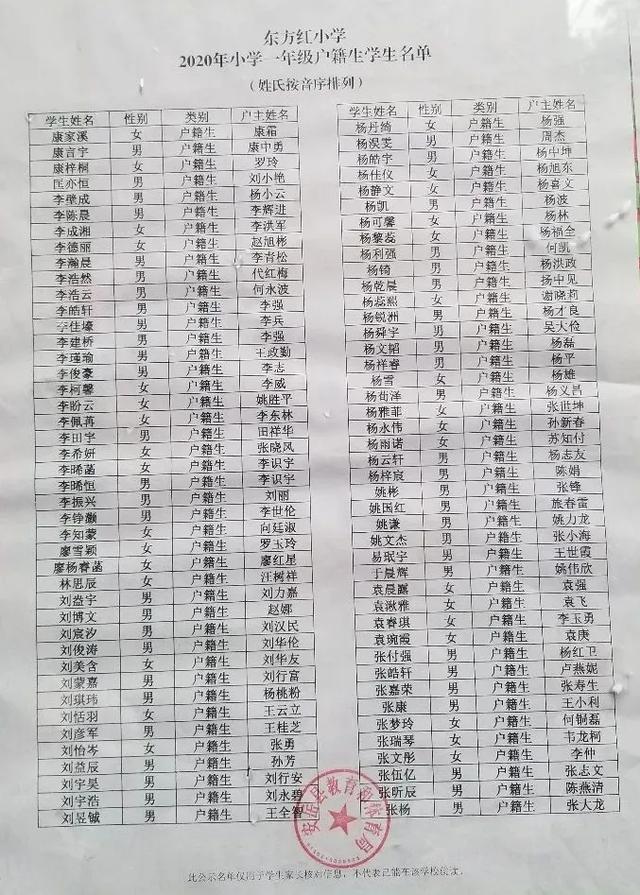 东方红小学
2020年小学一年级户籍生学生名单
（姓氏按音序排列）
学生姓名 性别 类别 户主姓名
康家溪 女 户籍生 康霜
康言宇 男 户籍生 康中勇
康梓桐 女 户籍生 罗玲
匡亦恒 男 户籍生 刘小艳
李璧成 男 户籍生 杨小云
李陈晨 男 户籍生 李辉进
李成湘 女 户籍生 李洪军
李德丽 女 户籍生 赵旭彬
李瀚晨 男 户籍生 李青松
李浩然 男 户籍生 代红梅
李浩云 男 户籍生 何永波
李皓轩 男 户籍生 李强
李佳壕 男 户籍生 李兵
李建桥 男 户籍生 李强
李瑾瑜 男 户籍生 王政勤
李俊豪 男 户籍生 李志
李柯馨 女 户籍生 李威
李盼云 女 户籍生 姚胜平
李佩苒 女 户籍生 李东林
李田宇 男 户籍生 田祥华
李希妍 女 户籍生 张晓凤
李晞菡 女 户籍生 李识宇
李晞恒 男 户籍生 李识宇
李振兴 男 户籍生 刘丽
李铮灏 男 户籍生 李世伦
李知蒙 女 户籍生 向廷淑
廖雪颖 女 户籍生 罗玉玲
廖杨睿菡 女 户籍生 廖红星
林思辰 女 户籍生 汪树祥
刘益宇 男 户籍生 刘力嘉
刘博文 男 户籍生 赵娜
刘宸汐 男 户籍生 刘汉民
刘俊涛 男 户籍生 刘华伦
刘美含 女 户籍生 刘华友
刘蒙嘉 男 户籍生 刘行富
刘琪玮 男 户籍生 杨桃粉
刘恬羽 女 户籍生 王云立
刘彦军 男 户籍生 王桂芝
刘怡岑 女 户籍生 张勇
刘益辰 男 户籍生 孙芳
刘宇昊 男 户籍生 刘行安
刘宇浩 男 户籍生 刘永碧
刘昱铖 男 户籍生 王全智
学生姓名 性别 类别 户主姓名
杨丹绮 女 户籍生 杨强
杨淏雯 男 户籍生 周杰
杨皓宇 男 户籍生 杨中坤
杨佳仪 女 户籍生 杨旭东
杨静文 女 户籍生 杨喜文
杨凯 男 户籍生 杨波
杨可馨 女 户籍生 杨林
杨黎蕊 女 户籍生 杨福全
杨利强 男 户籍生 何凯
杨锜 男 户籍生 杨洪政
杨乾晨 男 户籍生 杨中见
杨蕊熙 女 户籍生 谢晓莉
杨锐洲 男 户籍生 杨才良
杨舜宇 男 户籍生 吴大伦
杨文韬 男 户籍生 杨磊
杨祥睿 男 户籍生 杨平
杨雪 女 户籍生 杨雄
杨荀洋 男 户籍生 杨义昌
杨雅菲 女 户籍生 张世坤
杨永伟 女 户籍生 孙新春
杨雨诺 女 户籍生 苏知付
杨云轩 男 户籍生 杨志友
杨梓宸 男 户籍生 陈娟
姚彬 男 户籍生 张锋
姚国红 男 户籍生 旅春雷
姚谦 男 户籍生 姚力龙
姚文杰 男 户籍生 张小海
易珉宇 男 户籍生 王世霞
于晨辉 男 户籍生 姚伟欣
袁晨曦 女 户籍生 袁强
袁湫雅 女 户籍生 袁飞
袁睿琪 女 户籍生 李玉勇
袁琬霞 女 户籍生 袁庚
张付强 男 户籍生 杨红卫
张皓轩 男 户籍生 卢燕妮
张嘉荣 男 户籍生 张寿生
张康 男 户籍生 王小利
张梦玲 女 户籍生 何铜磊
张瑞琴 女 户籍生 韦龙柯
张文彤 女 户籍生 李仲
张伍亿 男 户籍生 张志文
张昕辰 男 户籍生 陈燕清
张杨 男 户籍生 张大龙
安居县教育和体育局
此公示名单仅用于学生家长核对信息，不代表已能在该学校就读。